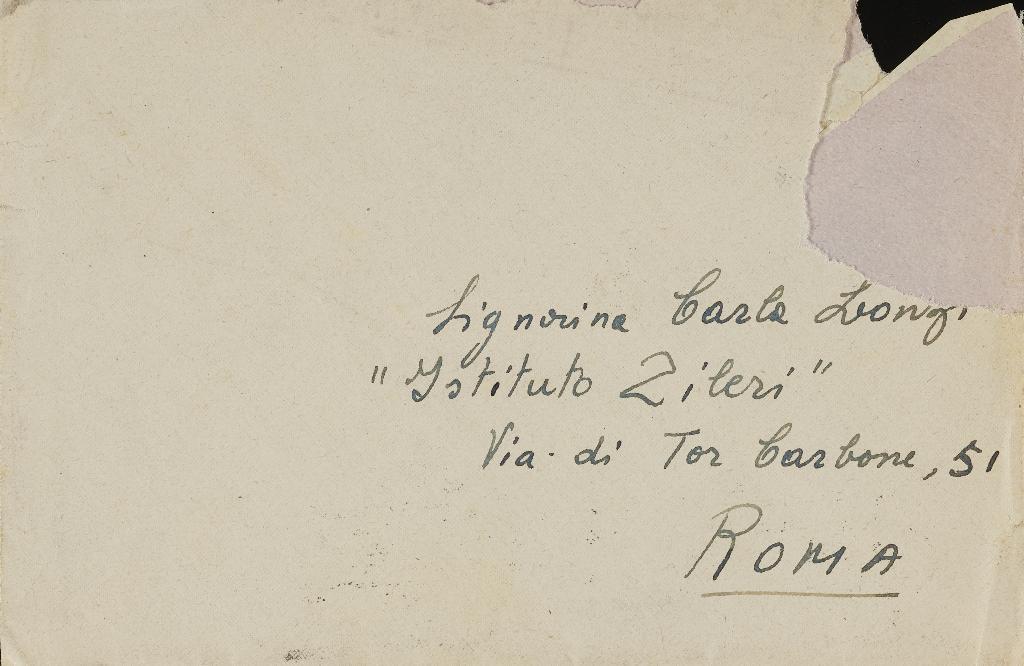 Signorina Carla Lonzi
"Istituto Zileri"
Via di Tor Carbone, 51
ROMA